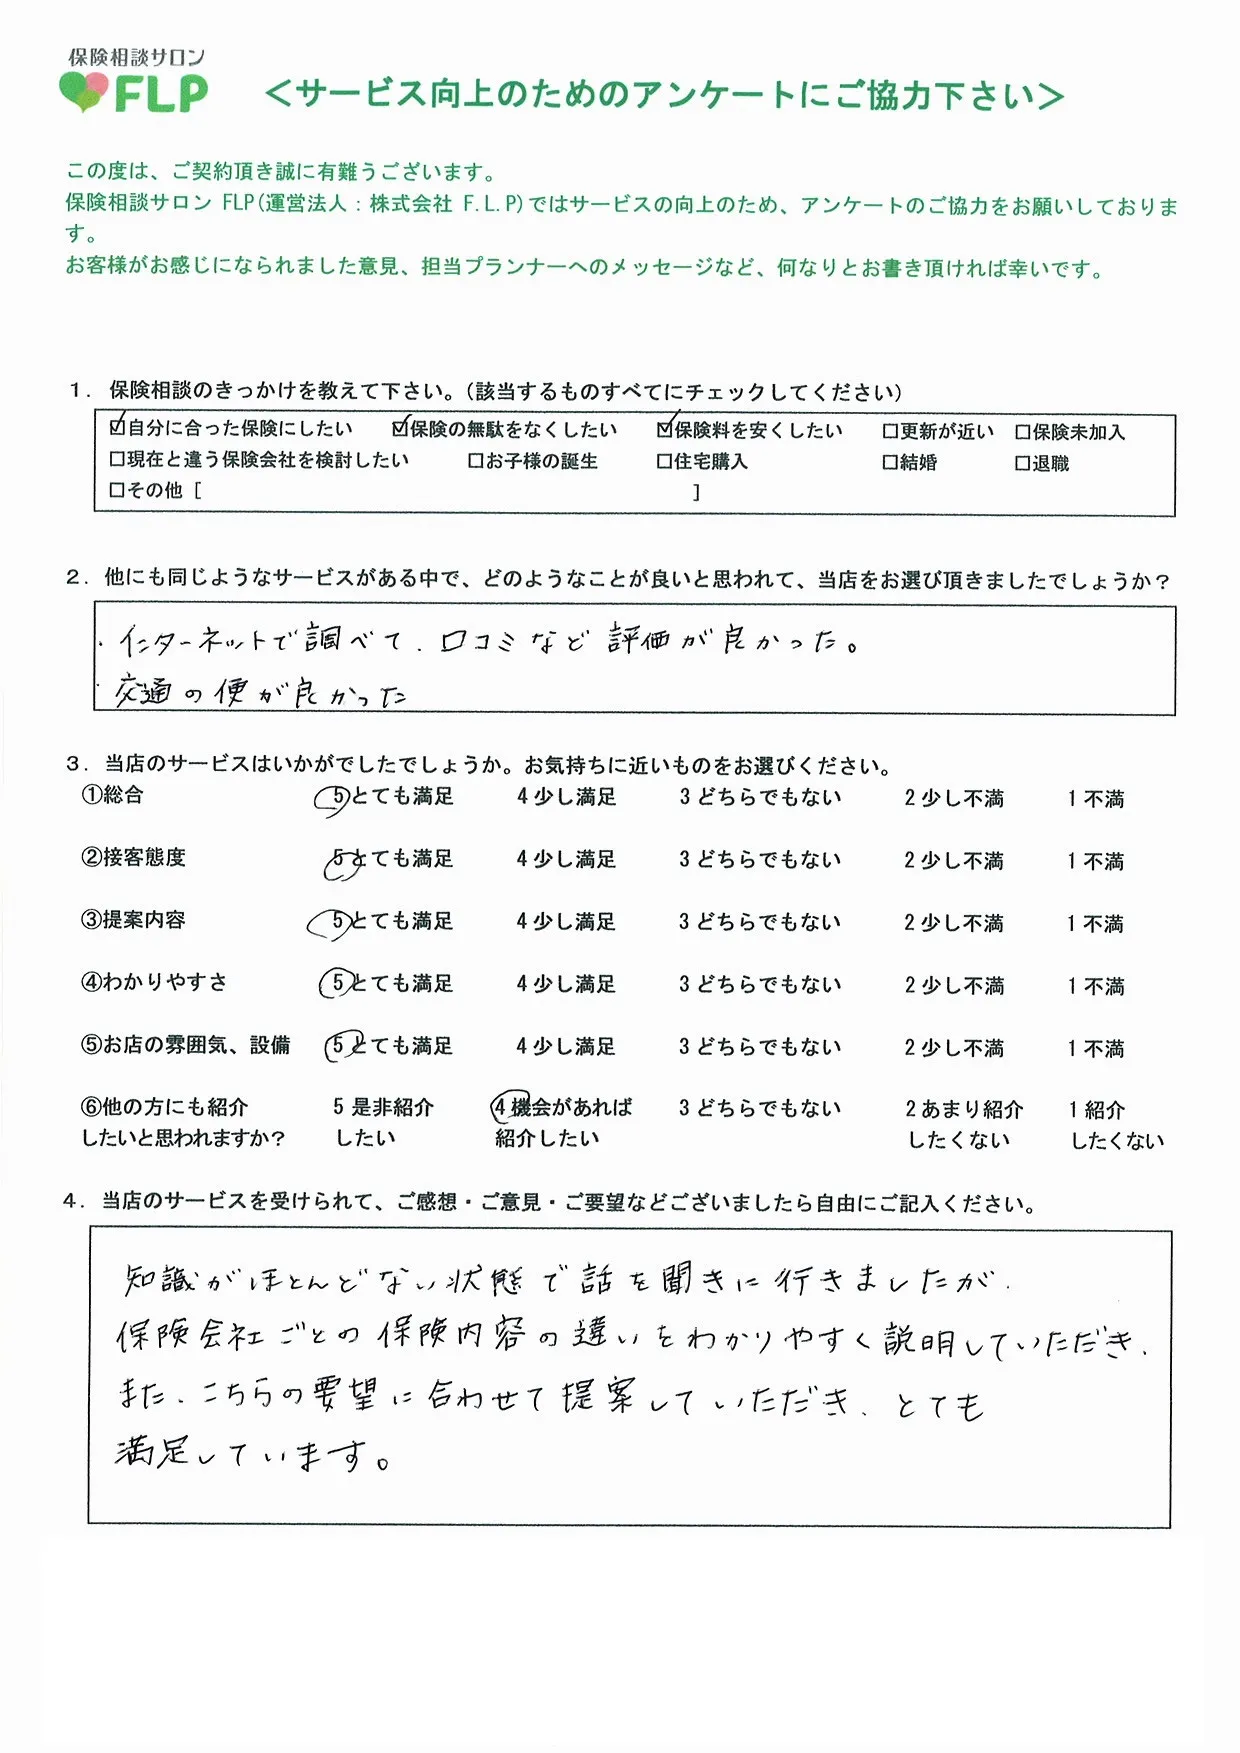 保険相談サロン
FLP
＜サービス向上のためのアンケートにご協力下さい＞
この度は、ご契約頂き誠に有難うございます。
保険相談サロン FLP(運営法人：株式会社 F.L.P)ではサービスの向上のため、アンケートのご協力をお願いしておりま
す。
お客様がお感じになられました意見、担当プランナーへのメッセージなど、何なりとお書き頂ければ幸いです。
1. 保険相談のきっかけを教えて下さい。(該当するものすべてにチェックしてください)
☑自分に合った保険にしたい ☑保険の無駄をなくしたい ☑保険料を安くしたい □更新が近い □保険未加入
□現在と違う保険会社を検討したい □お子様の誕生 □住宅購入 □結婚 □退職
□その他 [ ]
2. 他にも同じようなサービスがある中で、どのようなことが良いと思われて、当店をお選び頂きましたでしょうか？
・インターネットで調べて、口コミなど評価が良かった。
・交通の便が良かった
3. 当店のサービスはいかがでしたでしょうか。お気持ちに近いものをお選びください。
①総合 5とても満足 4少し満足 3どちらでもない 2少し不満 1不満
②接客態度 5とても満足 4少し満足 3どちらでもない 2少し不満 1不満
③提案内容 5とても満足 4少し満足 3どちらでもない 2少し不満 1不満
④わかりやすさ 5とても満足 4少し満足 3どちらでもない 2少し不満 1不満
⑤お店の雰囲気、設備 5とても満足 4少し満足 3どちらでもない 2少し不満 1不満
⑥他の方にも紹介 5是非紹介 4機会があれば 3どちらでもない 2あまり紹介 1紹介
したいと思われますか？ したい 紹介したい したくない したくない
4. 当店のサービスを受けられて、ご感想・ご意見・ご要望などございましたら自由にご記入ください。
知識がほとんどない状態で話を聞きに行きましたが、
保険会社ごとの保険内容の違いをわかりやすく説明していただき、
また、こちらの要望に合わせて提案していただき、とても
満足しています。